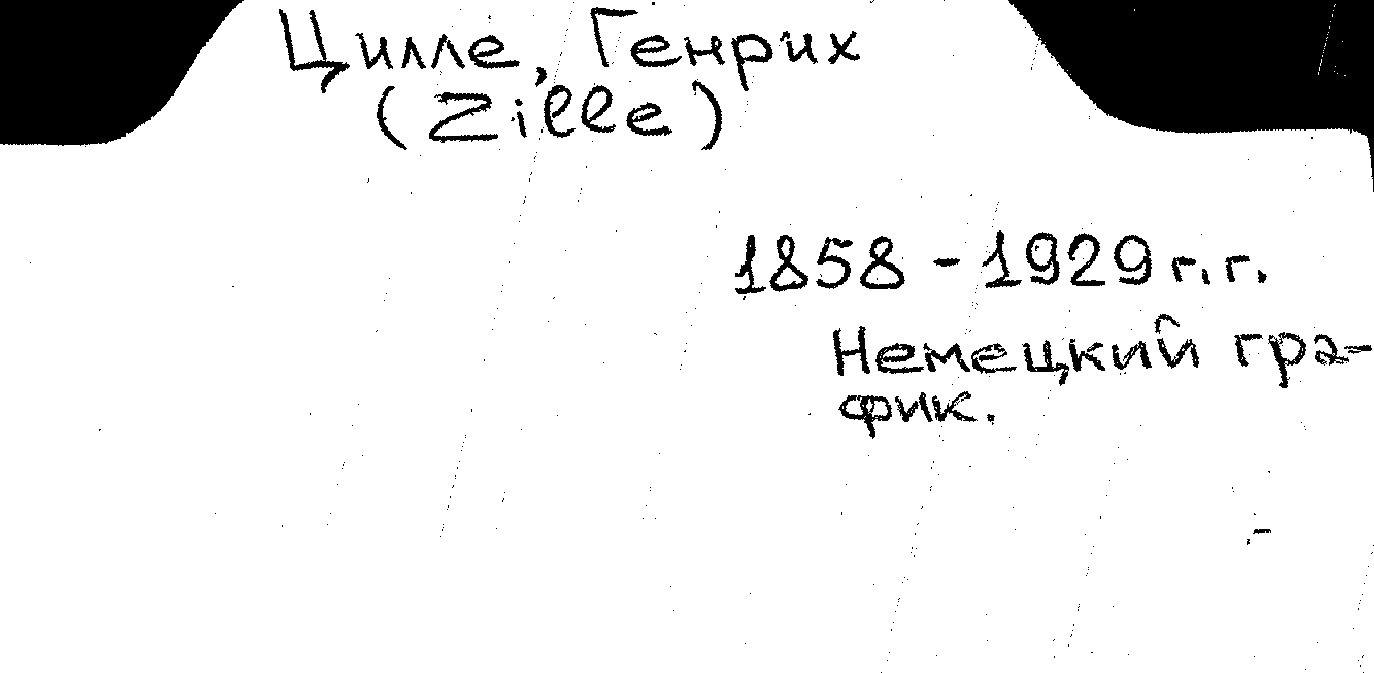 Цилле, Генрих
(Zille)
1858 - 1929 г.г.
Немецкий гра-
фик.